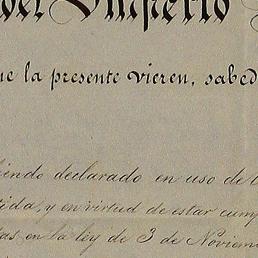 del Imperio
ue la presente vieren, sabed
iendo declarado en uso de
tida, y en virtud de estar cump
as en la ley de 3 de Noviem